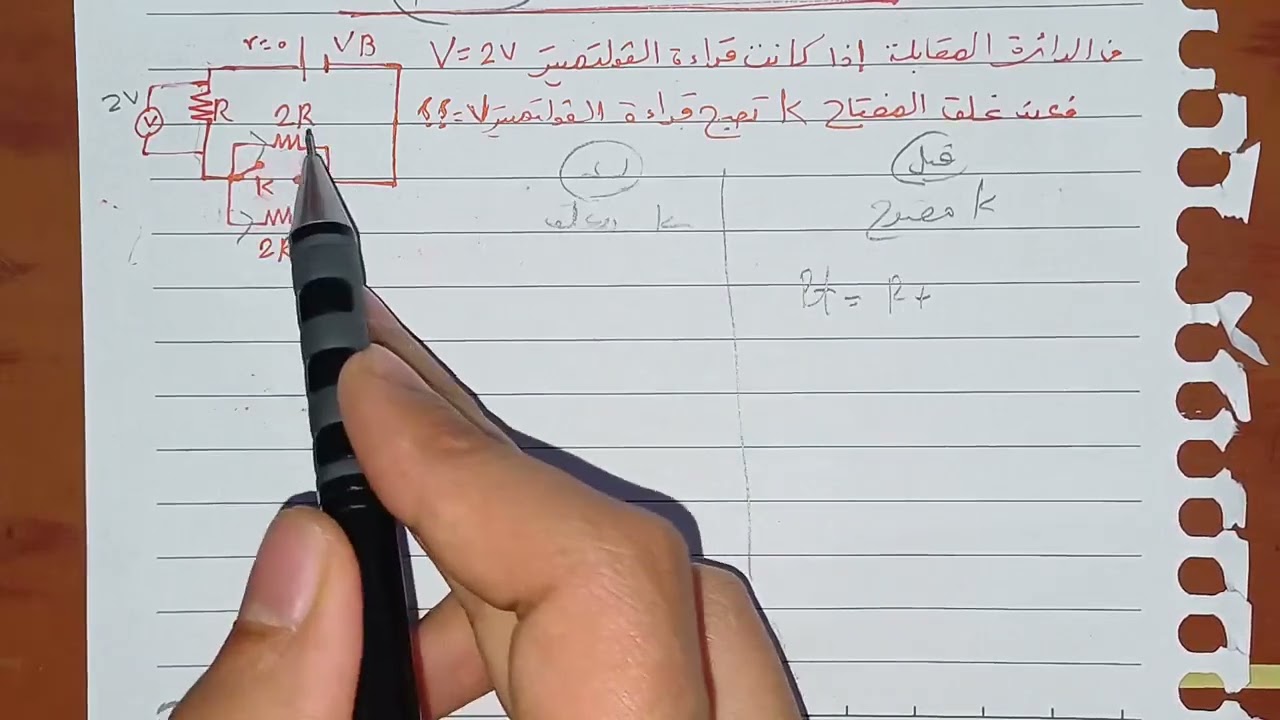 فى الدائرة المقابلة إذا كانت قراءة الڤولتميتر V=2V
فعند غلق المفتاح K تصبح قراءة الڤولتميتر V=؟؟
r=0 VB
2V
V
R
2R
K
2R
قبل
K مفتوح
Rt = R +
K